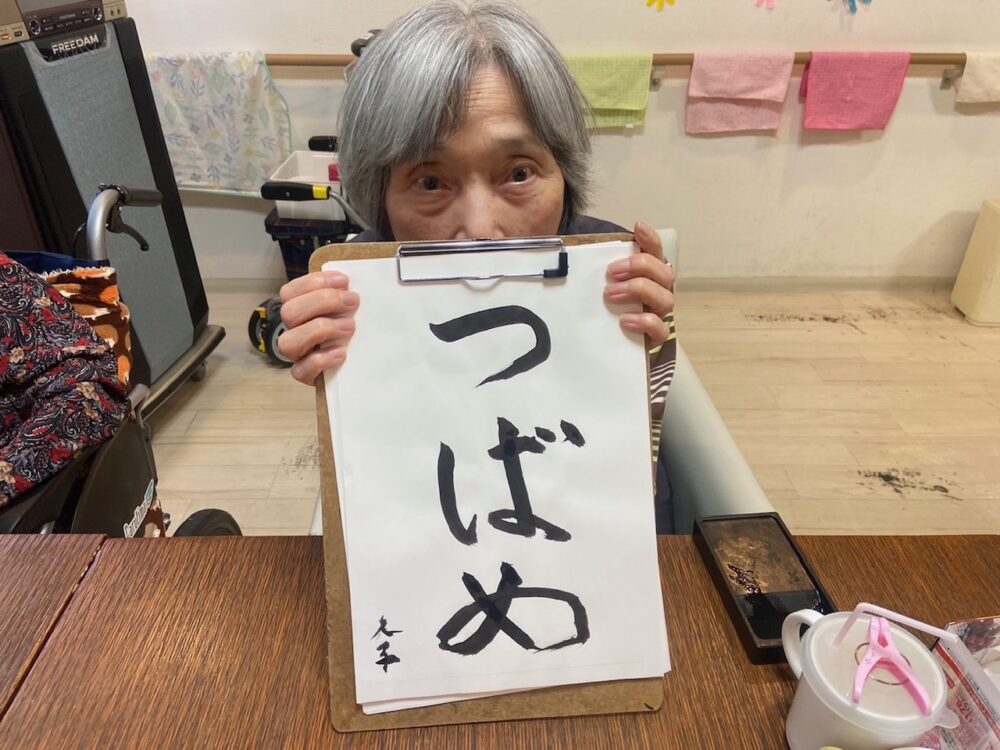 FREEDAM
つばめ
久子